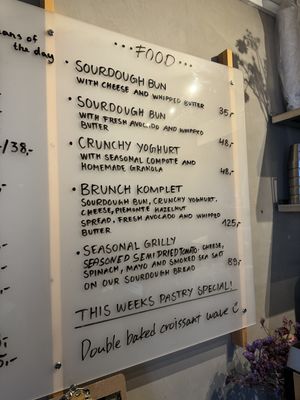 ans of
the day
/38,-
,-
•••FOOD•••
• SOURDOUGH BUN
WITH CHEESE AND WHIPPED BUTTER 35,-
• SOURDOUGH BUN
WITH FRESH AVOCADO AND WHIPPED
BUTTER 48,-
• CRUNCHY YOGHURT
WITH SEASONAL COMPOTE AND
HOMEMADE GRANOLA 48,-
• BRUNCH KOMPLET
SOURDOUGH BUN, CRUNCHY YOGHURT,
CHEESE, PIEMONTE HAZELNUT
SPREAD. FRESH AVOCADO AND WHIPPED
BUTTER 125,-
• SEASONAL GRILLY
SEASONED SEMI DRIED TOMATO, CHEESE,
SPINACH, MAYO AND SMOKED SEA SALT
ON OUR SOURDOUGH BREAD 89,-
THIS WEEKS PASTRY SPECIAL!
Double baked croissant wave